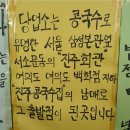 당업소는 콩국수로
유명한 서울 삼성본관옆
서소문동의 "진주회관"
여의도 여의도 백화점 지하
진주 콩국수집의 남매로
그 출발점이 된 곳입니다